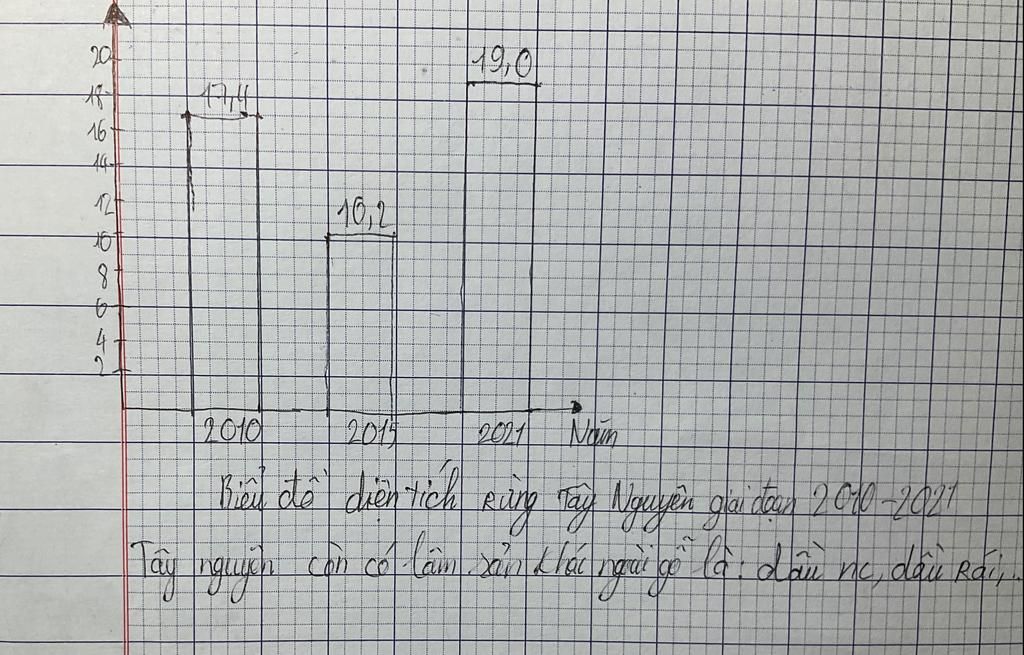 20
19,0
18
17,4
16
14
12
10,2
10
8
6
4
2
2010 2015 2021 Năm
Biểu đồ diện tích rừng Tây Nguyên giai đoạn 2010-2021
Tây nguyên còn có lâm sản khác ngoài gỗ là: dầu nc, dầu Rái,..